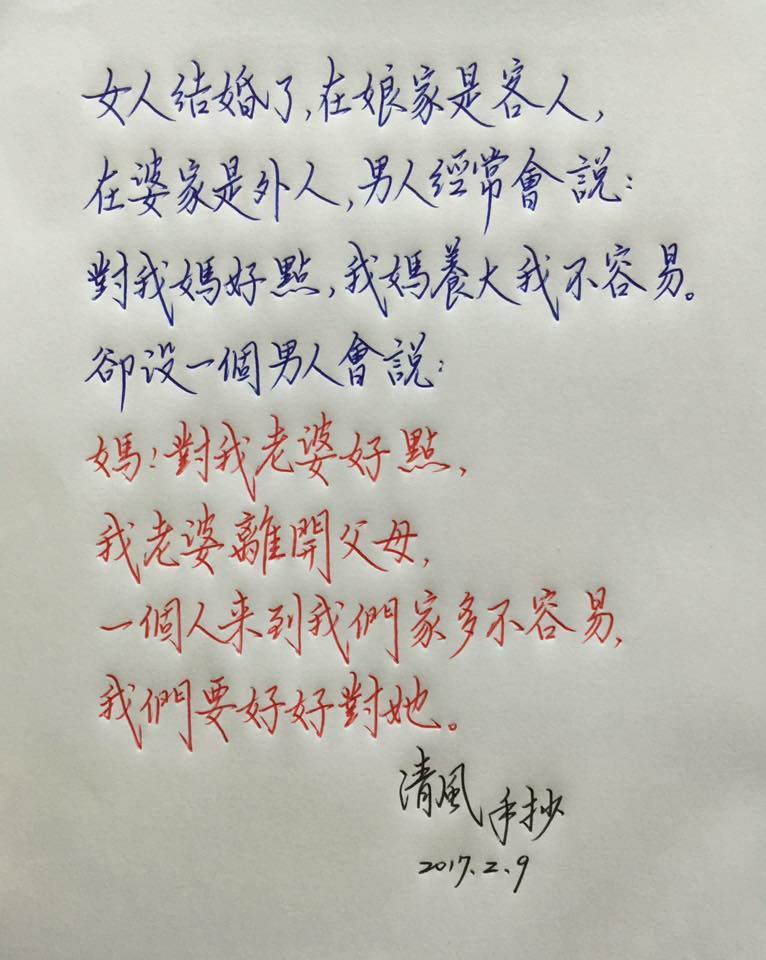 女人结婚了,在娘家是客人,
在婆家是外人,男人經常會說:
對我媽好點,我媽養大我不容易。
卻没一個男人會説:
媽!對我老婆好點,
我老婆離開父母,
一個人来到我們家多不容易,
我們要好好對她。
清風手抄
2017.2.9